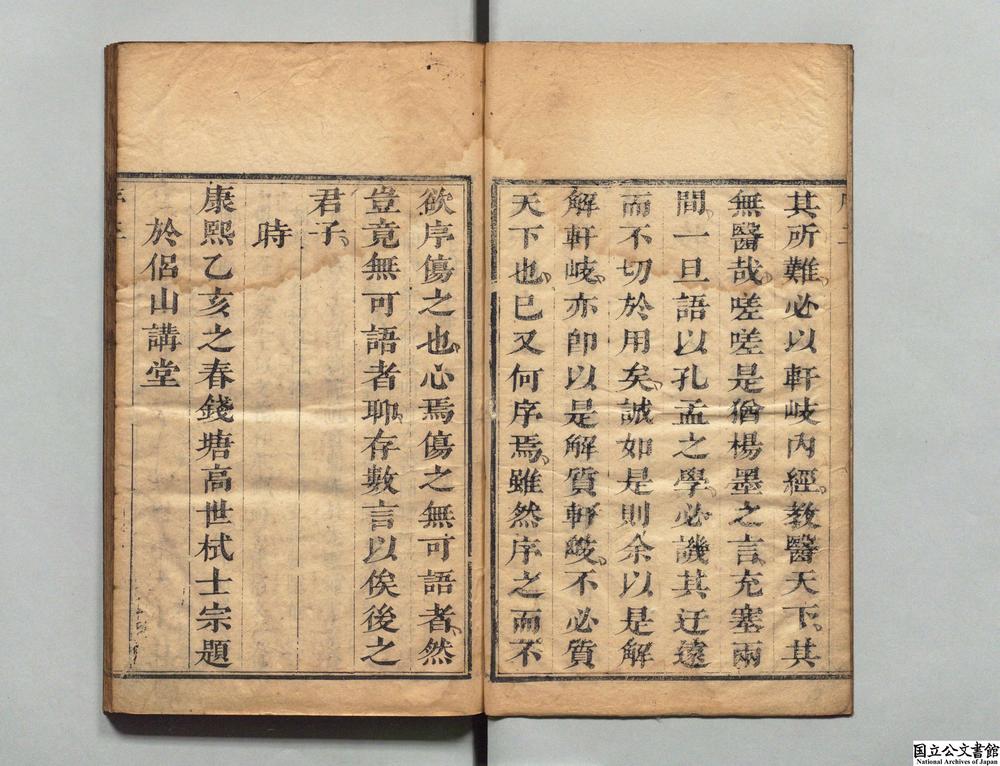 其所難必以軒岐内經教醫天下其
無醫哉嗟嗟是猶楊墨之言充塞兩
間一旦語以孔孟之學必譏其迂遠
而不切於用矣誠如是則余以是解
解軒岐亦即以是解質軒岐不必質
天下也已又何序焉雖然序之而不
欲序傷之也心焉傷之無可語者然
豈竟無可語者聊存數言以俟後之
君子
時
康熙乙亥之春錢塘高世栻士宗題
於侶山講堂
国立公文書館
National Archives of Japan